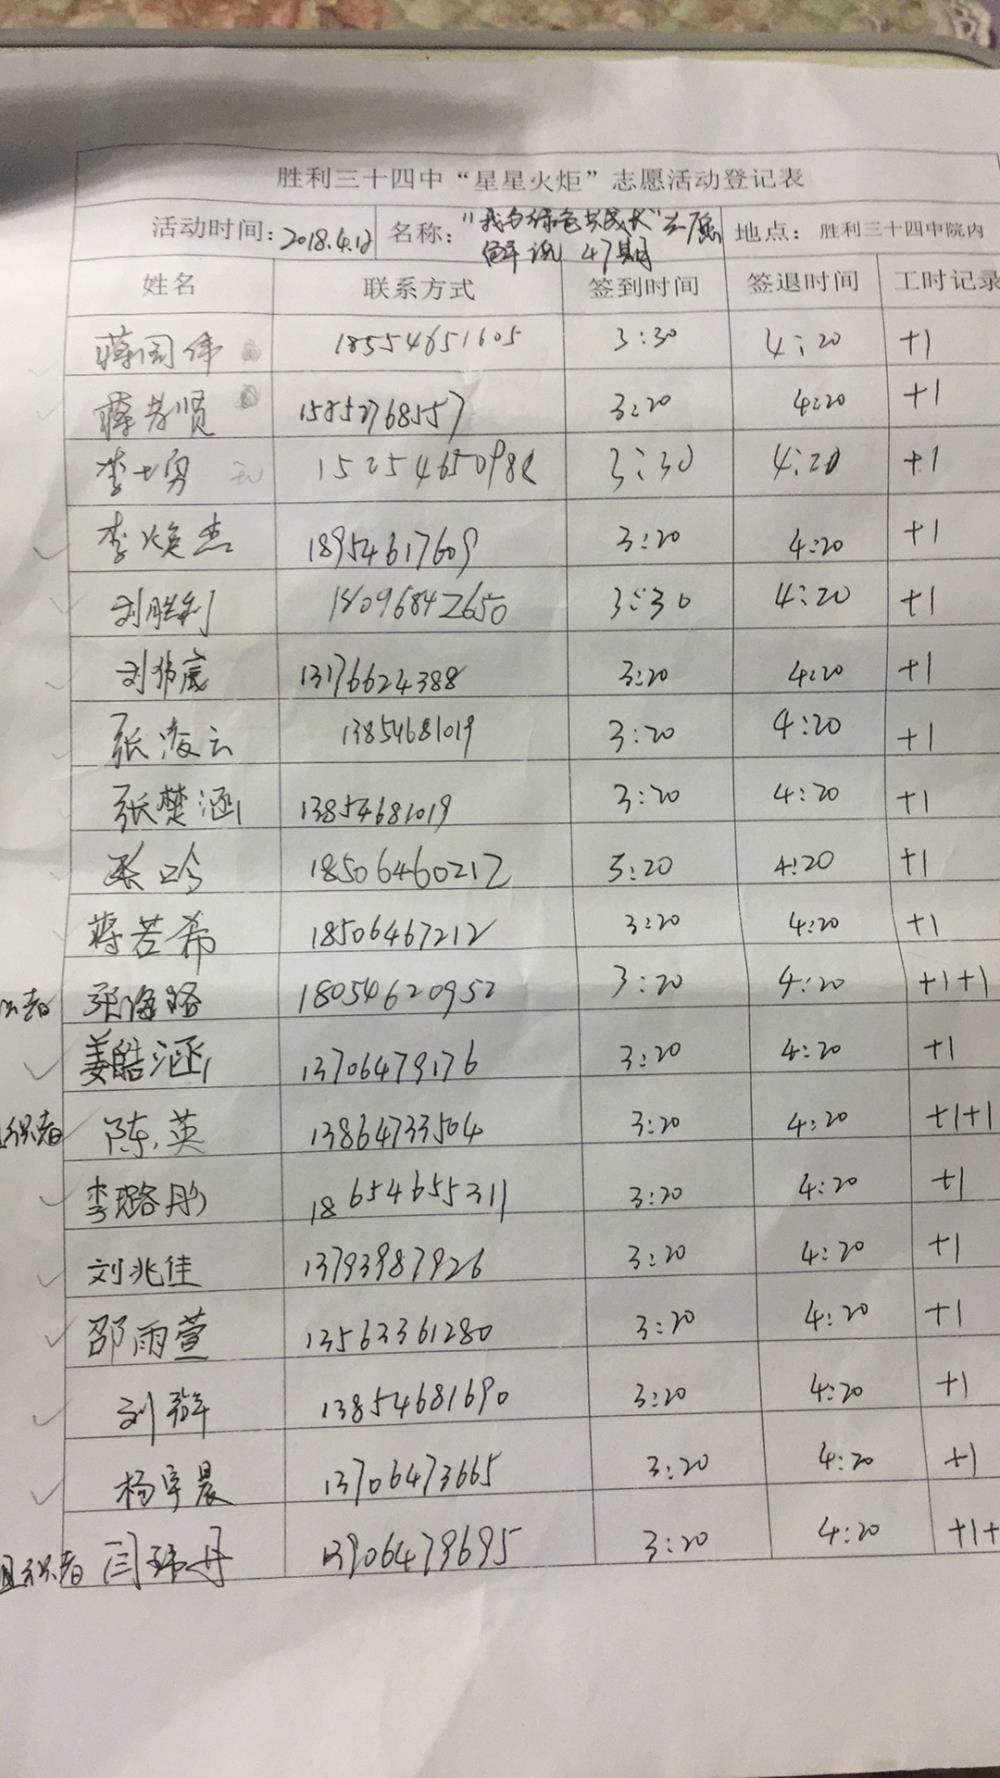 胜利三十四中“星星火炬”志愿活动登记表
活动时间：2018.4.12 名称：“我与绿色共成长”金属 地点：胜利三十四中院内
解说 47期
姓名 联系方式 签到时间 签退时间 工时记录
蒋国伟 18554651605 3:30 4:20 +1
蒋孝贤 4:20 3:20 +1
李 勇 3:30 4:20 +1
李焕杰 18954617609 3:20 4:20 +1
刘胜利 3:30 4:20 +1
刘 宸 13176624388 3:20 4:20 +1
张凌云 13854681019 3:20 4:20 +1
张楚涵 13854681019 3:20 4:20 +1
18506460212 3:20 4:20 +1
蒋若希 18506467212 3:20 4:20 +1
张海路 18054620952 3:20 4:20 +1+1
姜皓涵 13706479176 3:20 4:20 +1
组织者 陈英 13864733504 3:20 4:20 +1+1
李璐彤 18654655311 3:20 4:20 +1
刘兆佳 13793987926 3:20 4:20 +1
邵雨萱 13563361280 3:20 4:20 +1
刘 13854681690 3:20 4:20 +1
杨宇晨 13706473665 3:20 4:20 +1
组织者 闫玮丹 13906479695 3:20 4:20 +1+